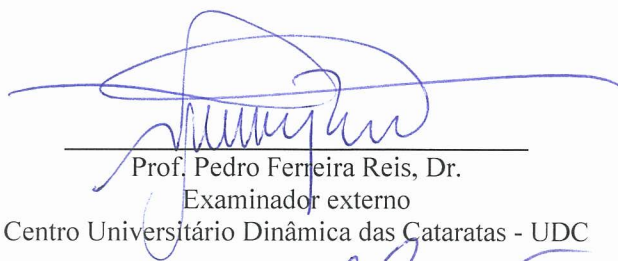 Prof. Pedro Ferreira Reis, Dr.
Examinador externo
Centro Universitário Dinâmica das Cataratas - UDC